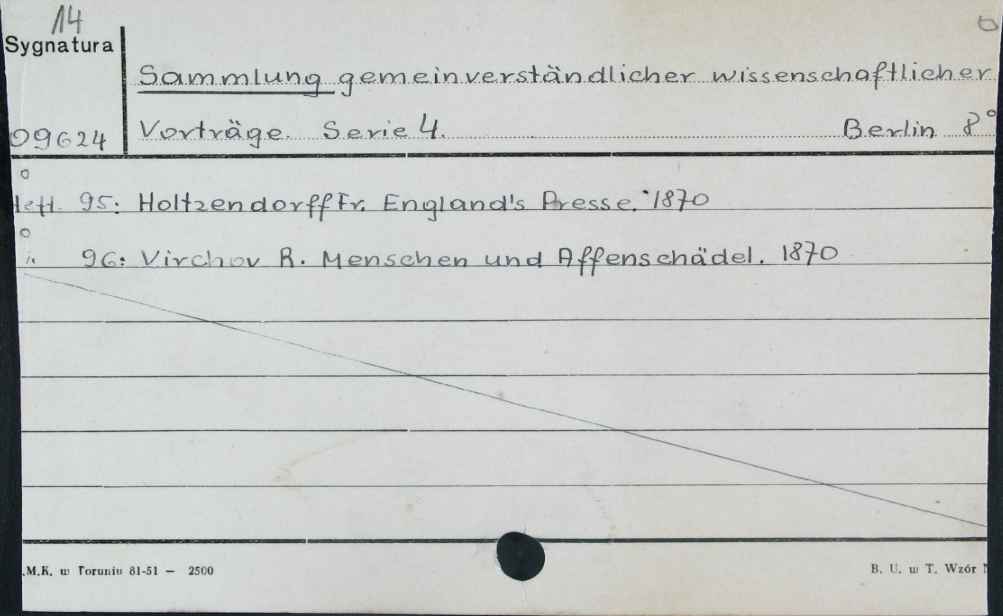 14
Sygnatura
Sammlung gemeinverständlicher wissenschaftlicher
09624 Vorträge. Serie 4. Berlin 8°
Heft 95: Holtzendorff Fr. England's Presse. 1870
" 96: Virchov R. Menschen und Affenschädel. 1870
.M.K. w Toruniu 81-51 — 2500 B. U. w T. Wzór